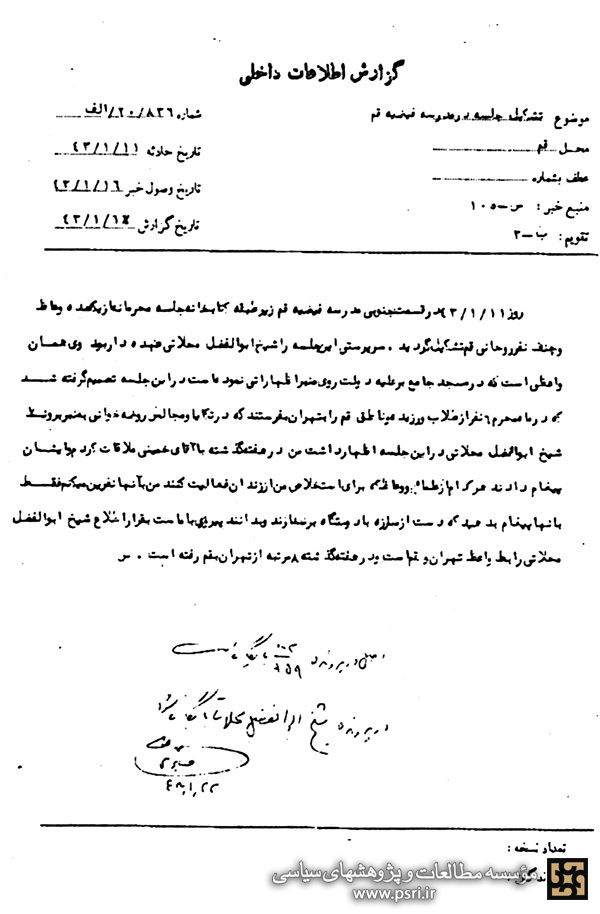 گزارش اطلاعات داخلی
موضوع تشکیل جلسه در مدرسه فیضیه قم
شماره ۲۰/۸۳۶/الف
محل قم
تاریخ حادثه ۴۳/۱/۱۱
عطف بشماره
تاریخ وصول خبر ۴۳/۱/۱۶
منبع خبر : س-۱۰۵
تاریخ گزارش ۴۳/۱/۱۸
تقویم : ب-۳
روز ۴۳/۱/۱۱ در قسمت جنوبی مدرسه فیضیه قم زیر طبقه کتابخانه جلسه محرمانه از یکعده وعاظ
و چند نفر روحانی قم تشکیل گردید . سرپرستی این جلسه را شیخ ابوالفضل محلاتی عهده دار بود وی همان
واعظی است که در مسجد جامع بر علیه دولت روی منبر اظهاراتی نموده است در این جلسه تصمیم گرفته شد
که در ماه محرم ۶۰ نفر از طلاب ورزیده و ناطق قم را بتهران بفرستند که در تکایا و مجالس روضه خوانی بمنبر بروند
شیخ ابوالفضل محلاتی در این جلسه اظهار داشت من در هفته گذشته با آقای خمینی ملاقات کردم و ایشان
پیغام دادند هر کدام از علماء و وعاظ که برای استخلاص من از زندان فعالیت کنند من به آنها نفرین میکنم فقط
بآنها پیغام بدهید که دست از مبارزه با دستگاه برندارند و بدانند پیروزی با ماست بقرار اطلاع شیخ ابوالفضل
محلاتی رابط وعاظ تهران و قم است و در هفته گذشته ۸ مرتبه از تهران بقم رفته است . س
اصل در پرونده بایگانی است
در پرونده شیخ ابوالفضل محلاتی بایگانی شود
تعداد نسخه :
مؤسسه مطالعات و پژوهشهای سیاسی
www.psri.ir